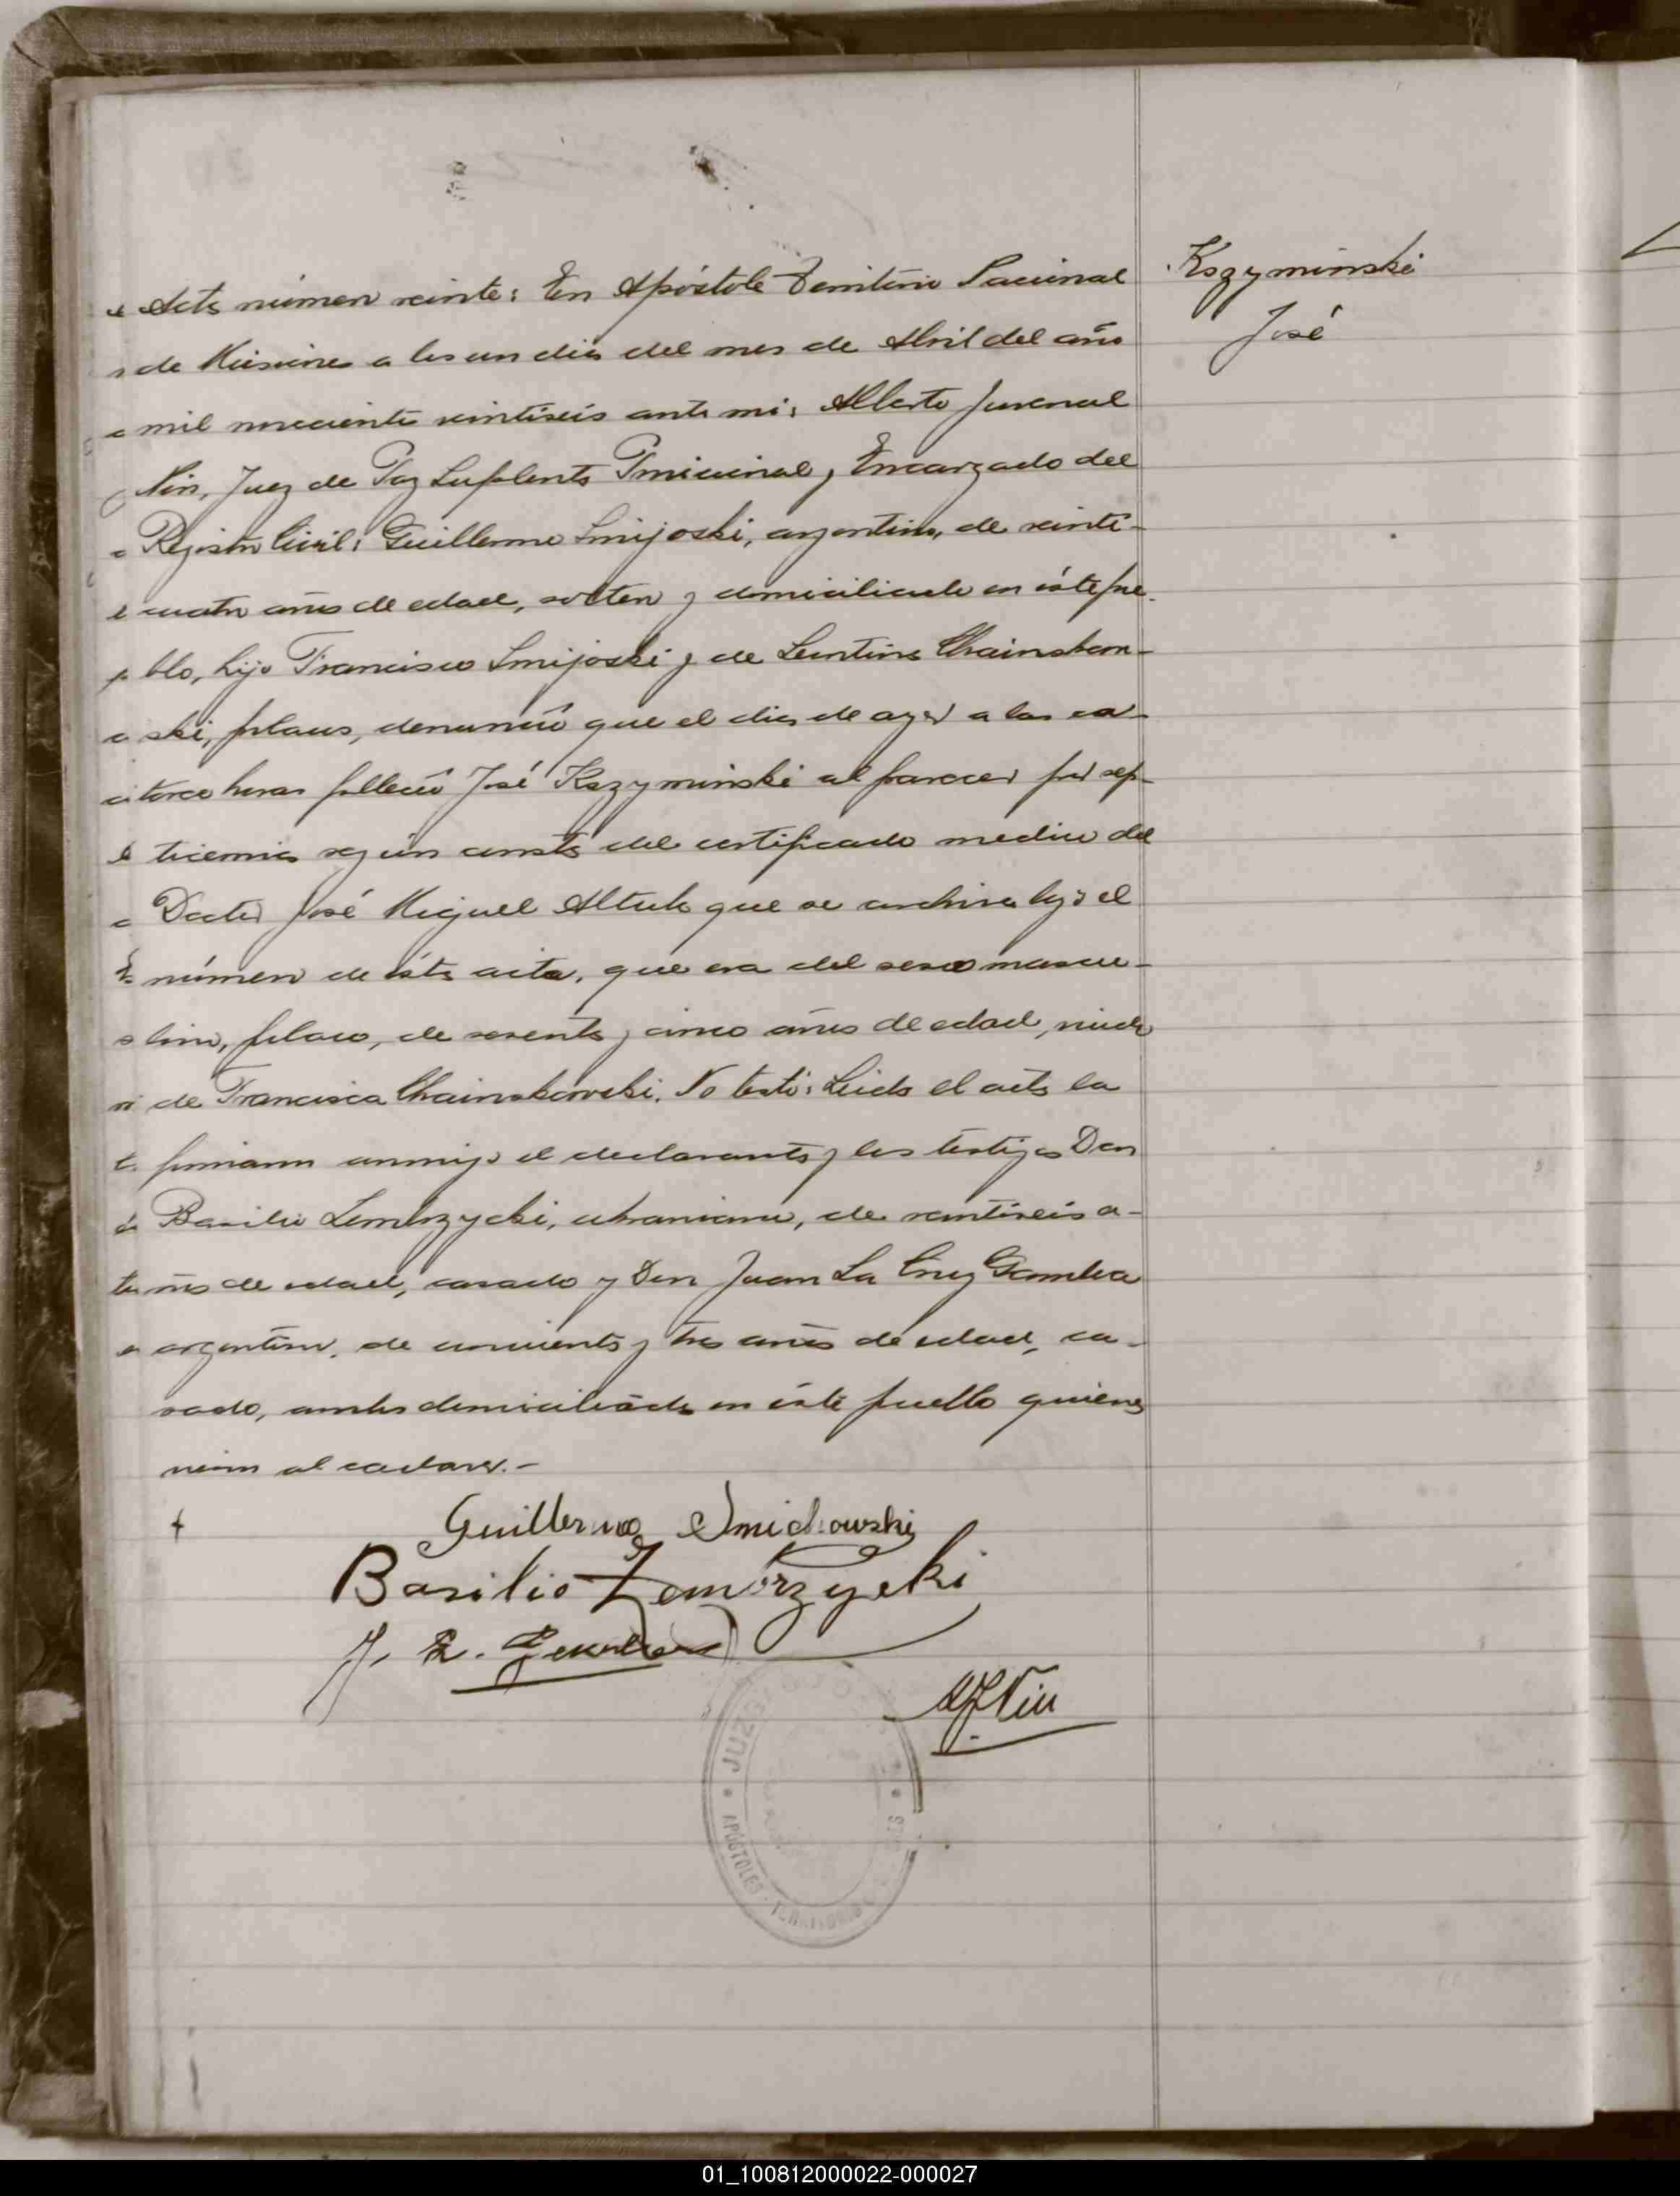 Kszyminski
José
Acta número veinte: En Apóstoles Territorio Nacional
de Misiones a los un dias del mes de Abril del año
mil novecientos veintiseis ante mi: Alberto Juvenal
Nin, Juez de Paz Suplente Provicional y Encargado del
Registro Civil: Guillermo Smijoski, argentino, de veinti-
cuatro años de edad, soltero y domiciliado en éste pue-
blo, hijo Francisco Smijoski y de Leontina Chainskow-
ski, polacos, denunció que el dia de ayer a las ca-
torce horas falleció José Kszyminski al parecer por sep-
ticemia según consta del certificado medico del
Doctor José Miguel que se archiva bajo el
número de ésta acta, que era del sexo mascu-
lino, polaco, de sesenta y cinco años de edad, viudo
de Francisca Chainskowski. No testó: Leida el acta la
firmaron conmigo el declarante y los testigos Don
Basilio Zemrzycki, ukraniano, de veintiseis a-
ños de edad, casado y Don Juan La Cruz Gamboa
argentino, de cincuenta y tres años de edad, ca-
sado, ambos domiciliados en éste pueblo quienes
vieron al cadaver.-
Guillermo Smichowski
Basilio Zemrzycki
AJNin
JUZ
APÓSTOLES
01_100812000022-000027